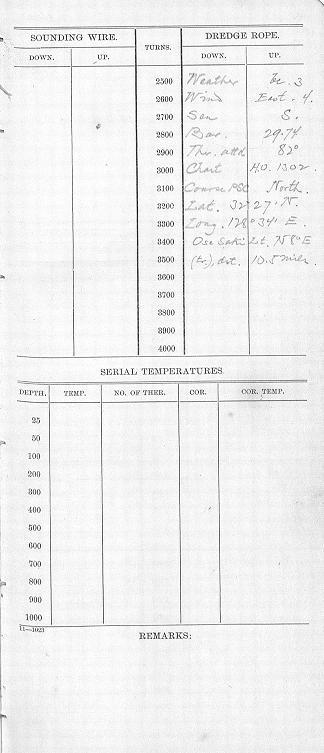 SOUNDING WIRE. TURNS. DREDGE ROPE.
DOWN. UP. DOWN. UP.
2500 Weather bc. 3
2600 Wind East. 4.
2700 Sea S.
2800 Bar. 29.74
2900 Ther. attd 82°
3000 Chart H.O. 1302.
3100 Course PSC North.
3200 Lat. 32° 27' N.
3300 Long. 128° 34' E.
3400 Ose Saki Lt. N 8° E
3500 (tr.), dist. 10.5 miles.
3600
3700
3800
3900
4000
SERIAL TEMPERATURES
DEPTH. TEMP. NO. OF THER. COR. COR. TEMP.
25
50
100
200
300
400
500
600
700
800
900
1000
11—1023
REMARKS: